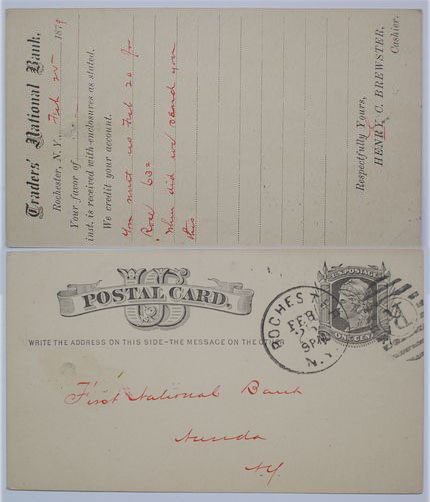 Traders' National Bank.
Rochester, N.Y., Feb 1879
Your favor of
inst. is received with enclosures as stated.
We credit your account.
You must us Feb 20 for
Rose 63
When did you send you
this
Respectfully Yours,
HENRY C. BREWSTER,
Cashier.
US
POSTAL CARD.
WRITE THE ADDRESS ON THIS SIDE–THE MESSAGE ON THE
ROCHESTER
FEB
9PM
N.Y.
U.S. POSTAGE
ONE CENT
First National Bank
Nunda
N.Y.